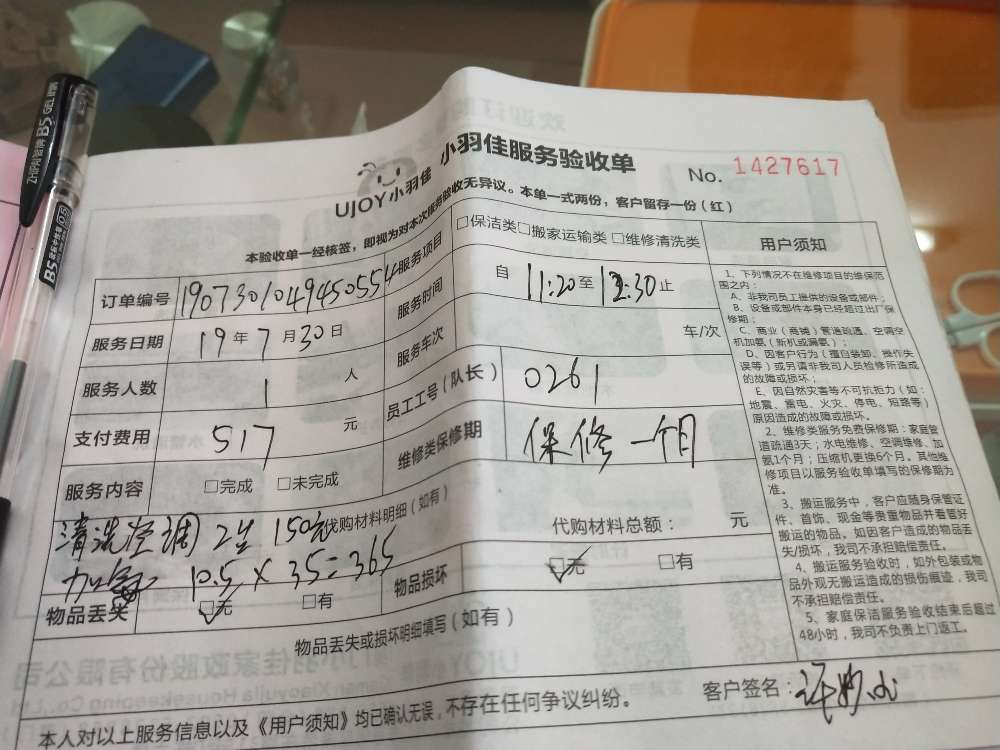 UJOY小羽佳 小羽佳服务验收单
No. 1427617
本验收单一经核签，即视为对本次服务验收无异议。本单一式两份，客户留存一份（红）
订单编号 190730104945055 服务项目 □保洁类□搬家运输类 □维修清洗类
服务日期 19 年 7 月 30 日 服务时间 自 11:20 至 12:30 止
服务人数 1 人 服务车次 车/次
支付费用 517 元 员工工号（队长） 0261
服务内容 □完成 □未完成 维修类保修期 保修一个月
清洗空调 2台 150元
代购材料明细（如有） 代购材料总额： 元
加氟 10.5 × 35 = 365
物品丢失 □无 □有 物品损坏 □无 □有
物品丢失或损坏明细填写（如有）
本人对以上服务信息以及《用户须知》均已确认无误，不存在任何争议纠纷。
客户签名：
用户须知
1、下列情况不在维修项目的维保范
围之内：
A、非我司员工提供的设备或部件；
B、设备或部件本身已经超过出厂保
修期；
C、商业（商铺）管道疏通、空调空
机加氨（新机或漏氨）；
D、因客户行为（擅自装卸、操作失
误等）或另请非我司人员检修所造成
的故障或损坏；
E、因自然灾害等不可抗拒力（如：
地震、雷电、火灾、停电、短路等）
原因造成的故障或损坏。
2、维修类服务免费保修期：家庭管
道疏通3天；水电维修、空调维修、加
氨1个月；压缩机更换6个月。其他维
修项目以服务验收单填写的保修期为
准。
3、搬运服务中，客户应随身保管证
件、首饰、现金等贵重物品并看管好
搬运的物品。如因客户造成的物品丢
失/损坏，我司不承担赔偿责任。
4、搬运服务验收时，如外包装或物
品外观无搬运造成的损伤痕迹，我司
不承担赔偿责任。
5、家庭保洁服务验收结束后超过
48小时，我司不负责上门返工。